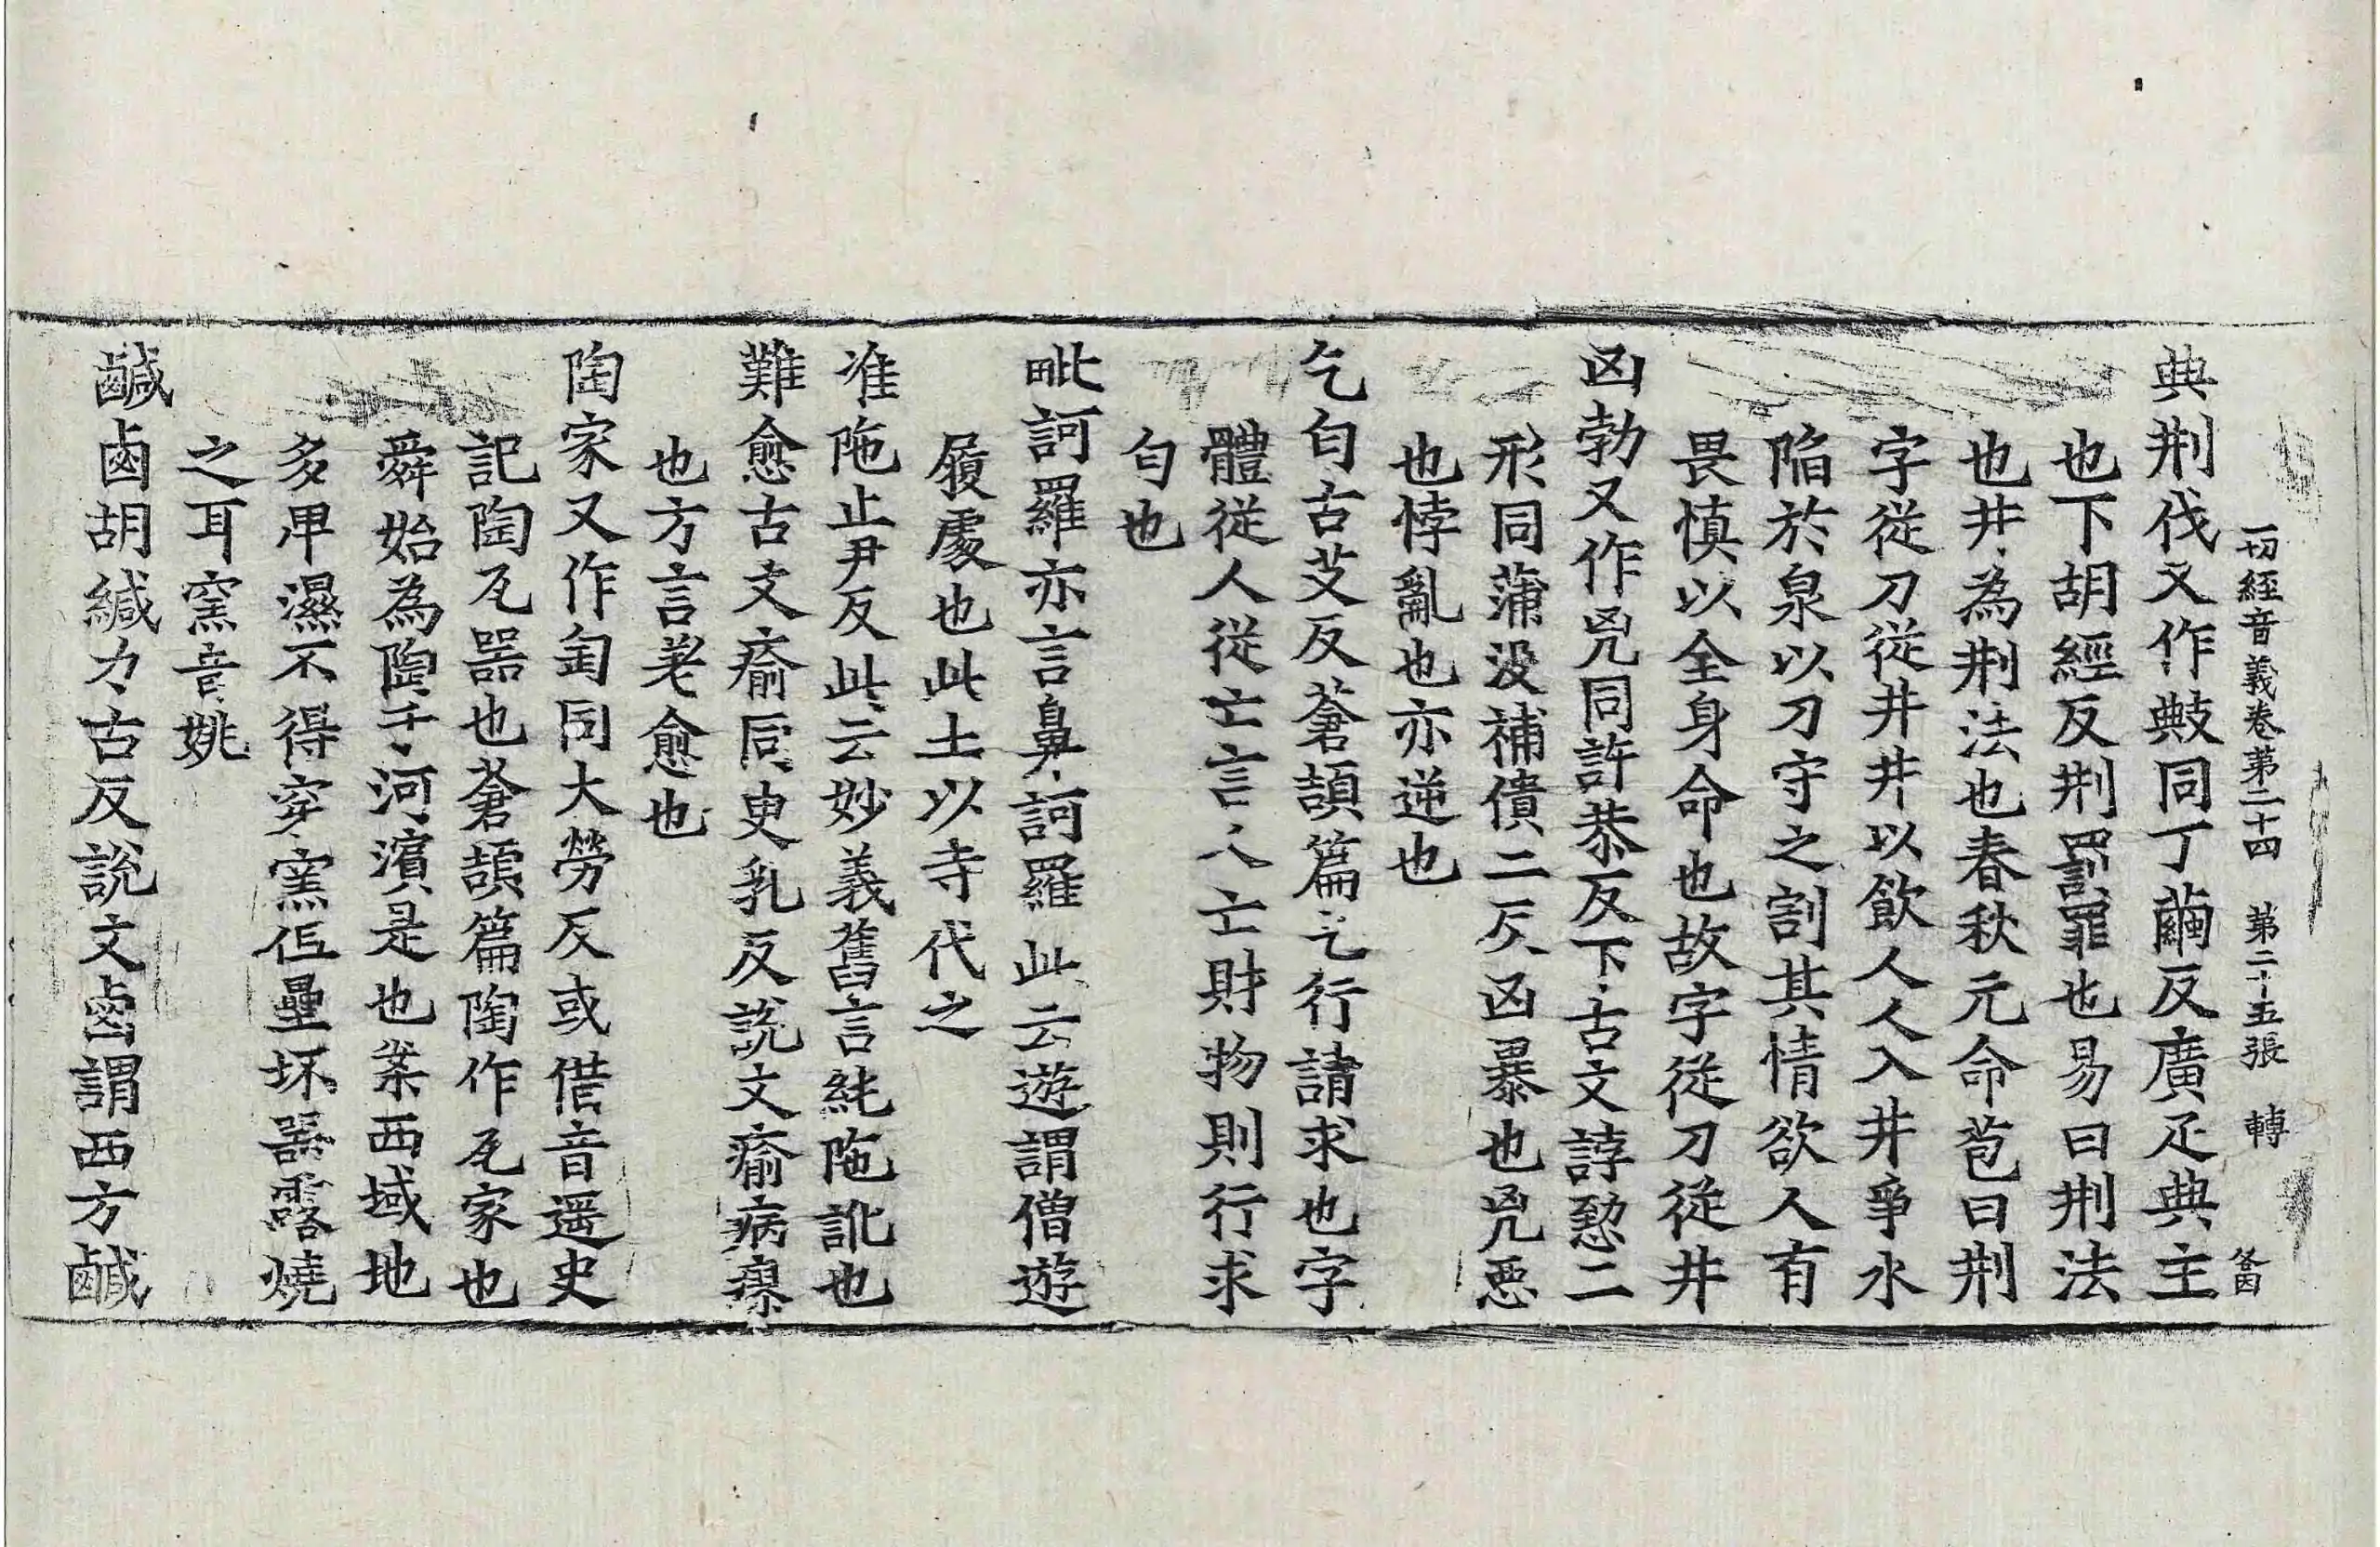 一切經音義卷第二十四　第二十五張　轉　
典刑伐又作敟同丁繭反廣疋典主
也下胡經反刑罰罪也易曰刑法
也井為刑法也春秋元命苞曰刑
字從刀從井井以飲人人入井爭水
陷於泉以刀守之割其情欲人有
畏慎以全身命也故字從刀從井
凶勃又作兇同許恭反下古文誖愂二
形同蒲沒補憒二反凶暴也兇惡
也悖亂也亦逆也
乞匄古艾反蒼頡篇乞行請求也字
體從人從亡言人亡財物則行求
匄也
毗訶羅亦言鼻訶羅此云遊謂僧遊
履處也此土以寺代之
准陁止尹反此云妙義舊言純陁訛也
難愈古文瘉同臾乳反說文瘉病瘳
也方言差愈也
陶家又作匋同大勞反或借音遥史
記陶瓦器也蒼頡篇陶作瓦家也
舜始為陶于河濱是也案西域地
多卑濕不得穿窯但壘坏器露燒
之耳窯音姚
鹹鹵胡緘力古反說文鹵謂西方鹹